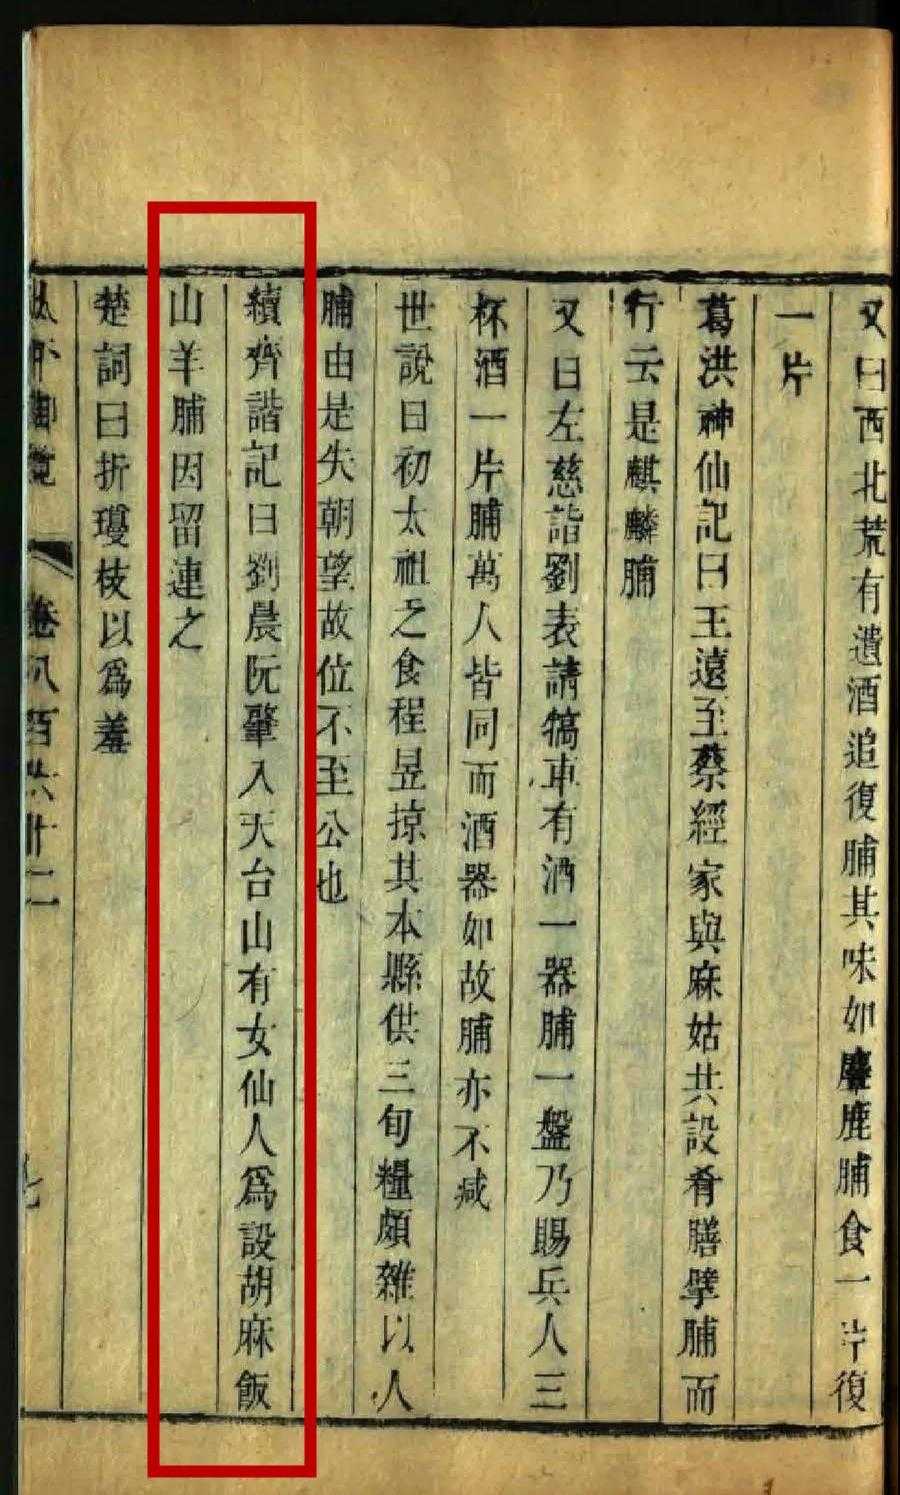 又曰西北荒有遺酒追復脯其味如麞鹿脯食一片復
一片
葛洪神仙記曰王遠至蔡經家與麻姑共設肴膳擘脯而
行云是麒麟脯
又曰左慈詣劉表請犒軍有酒一器脯一盤乃賜兵人三
杯酒一片脯萬人皆同而酒器如故脯亦不減
世說曰初太祖之食程昱掠其本縣供三旬糧頗雜以人
脯由是失朝望故位不至公也
續齊諧記曰劉晨阮肇入天台山有女仙人爲設胡麻飯
山羊脯因留連之
楚詞曰折瓊枝以爲羞
御覽 卷八百六十二 七